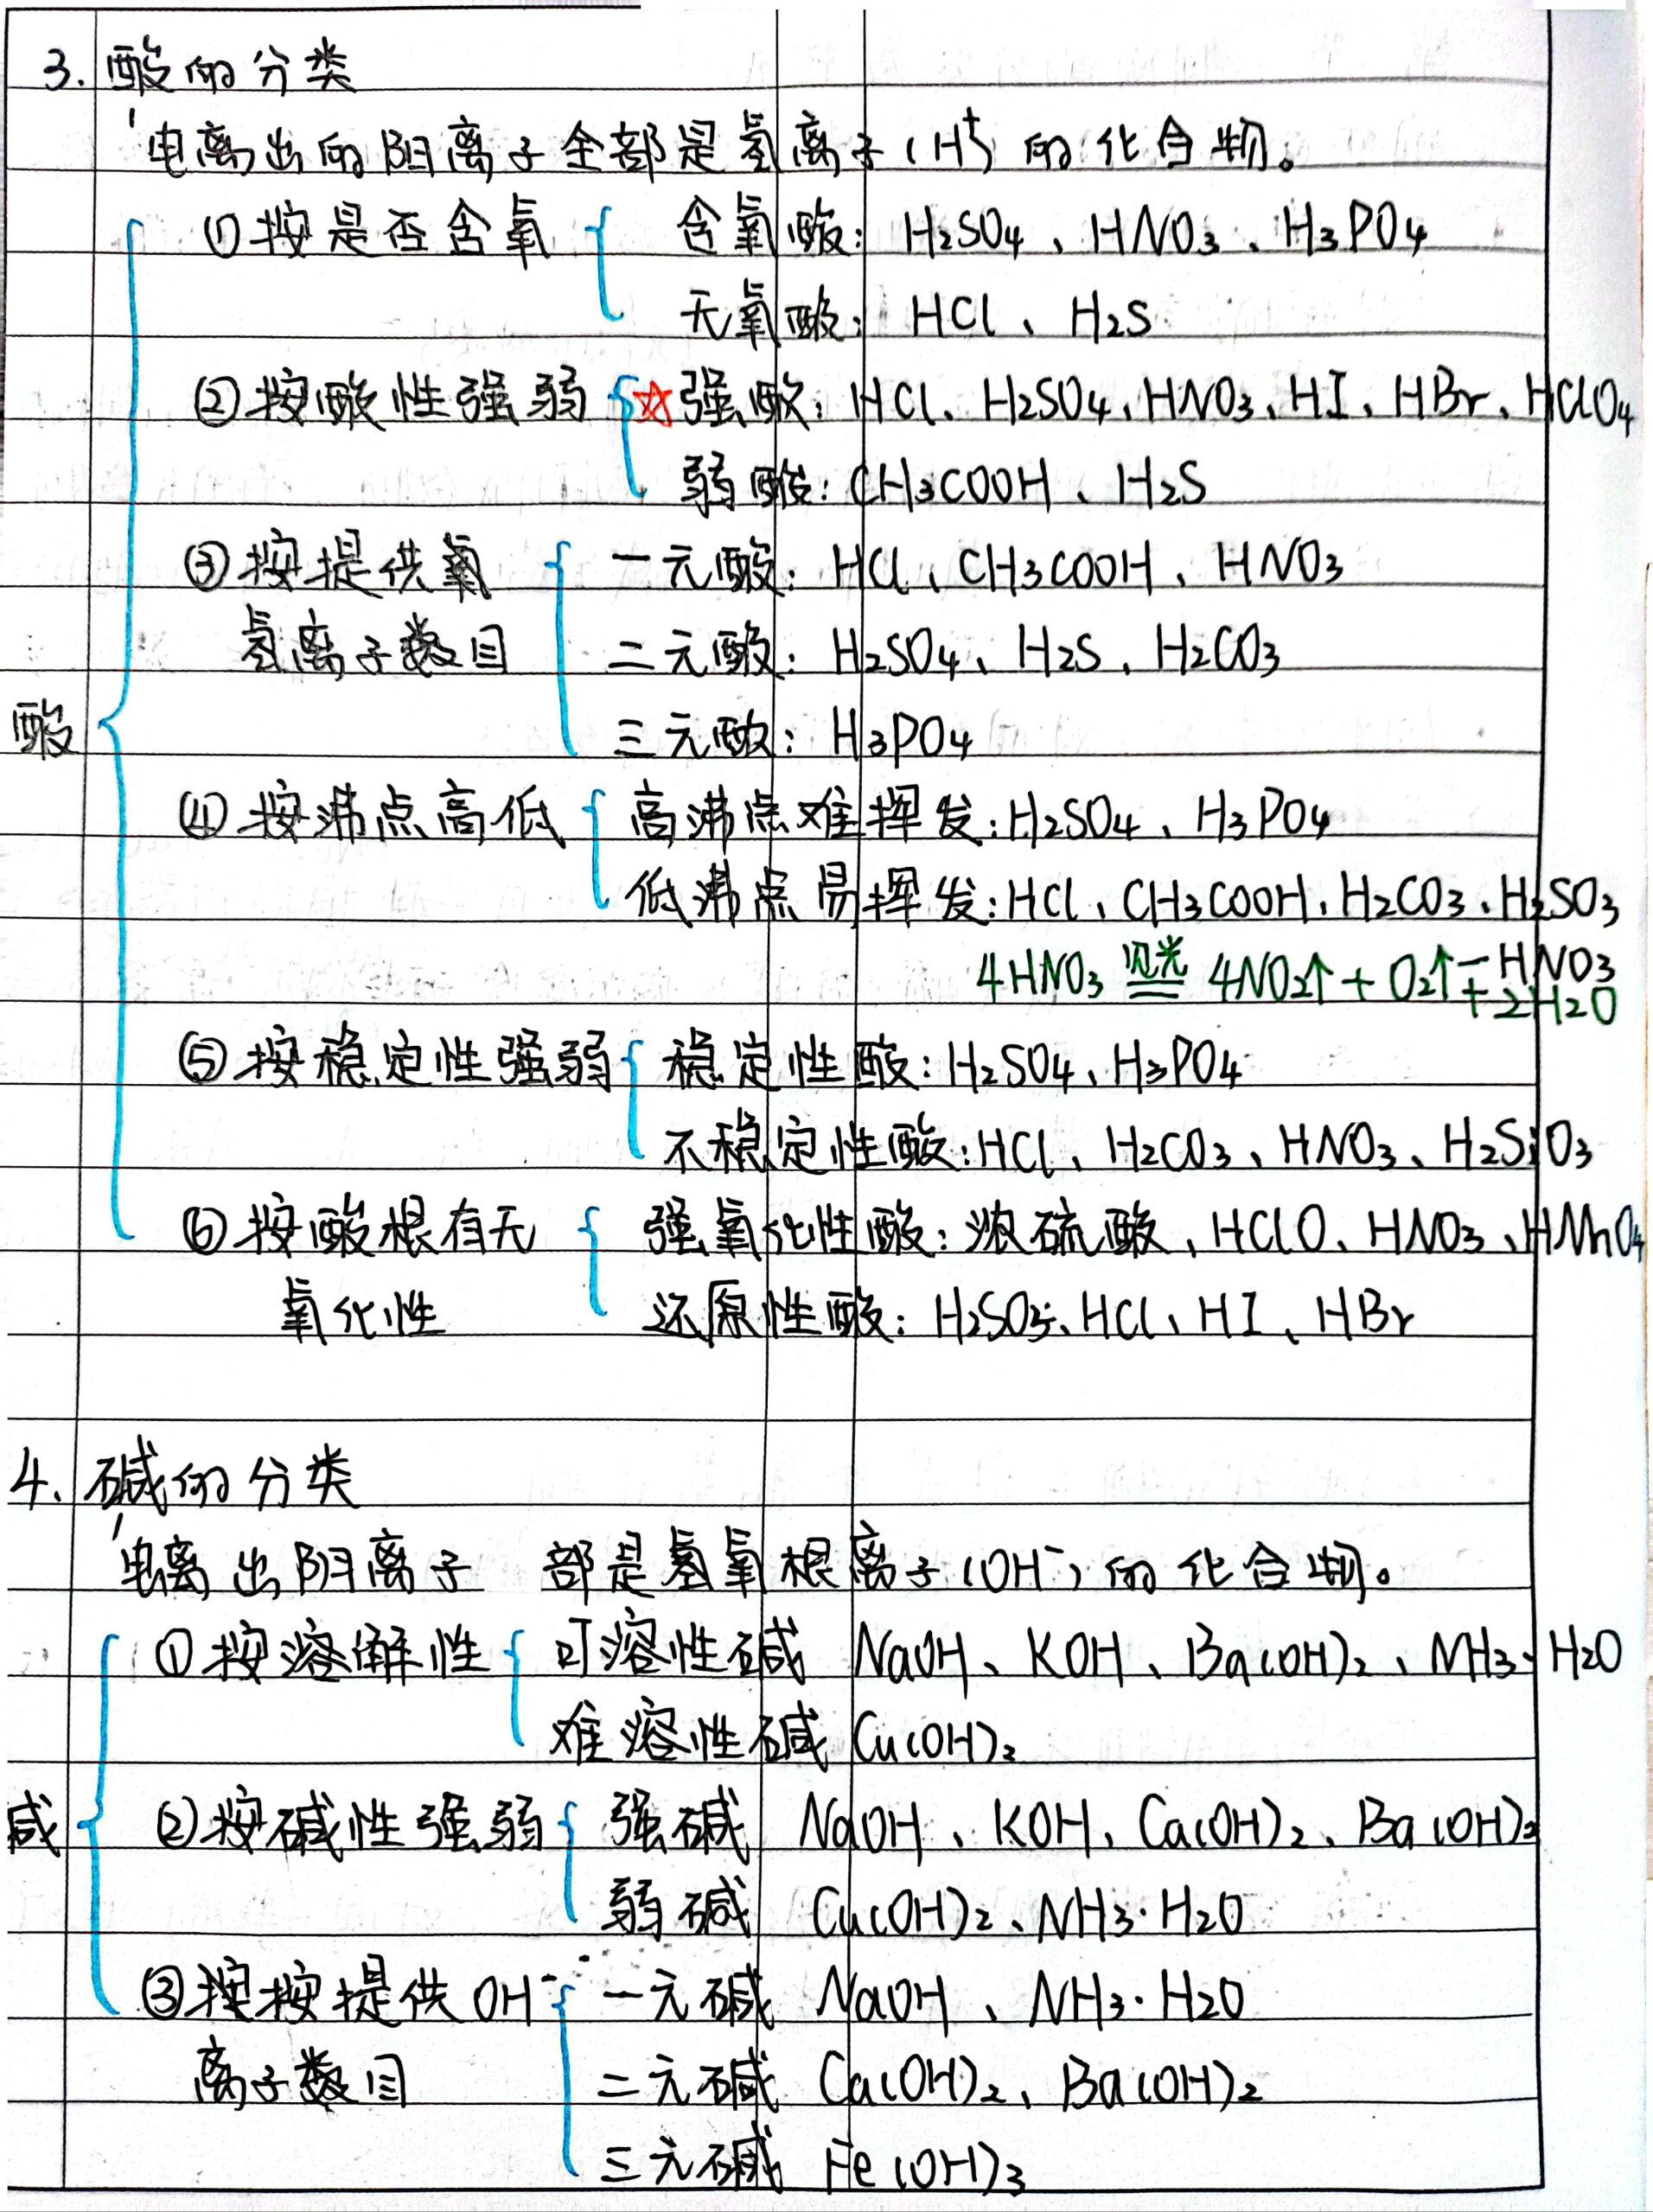 3. 酸的分类
电离出的阳离子全部是氢离子(H⁺)的化合物。
①按是否含氧 含氧酸: H₂SO₄、HNO₃、H₃PO₄
无氧酸: HCl、H₂S
②按酸性强弱 ☆强酸: HCl、H₂SO₄、HNO₃、HI、HBr、HClO₄
弱酸: CH₃COOH、H₂S
③按提供氧 一元酸: HCl、CH₃COOH、HNO₃
氢离子数目 二元酸: H₂SO₄、H₂S、H₂CO₃
酸
三元酸: H₃PO₄
④按沸点高低 高沸点难挥发: H₂SO₄、H₃PO₄
低沸点易挥发: HCl、CH₃COOH、H₂CO₃、H₂SO₃
HNO₃
4HNO₃ 见光 4NO₂↑+O₂↑+2H₂O
⑤按稳定性强弱 稳定性酸: H₂SO₄、H₃PO₄
不稳定性酸: HCl、H₂CO₃、HNO₃、H₂SiO₃
⑥按酸根有无 强氧化性酸: 浓硫酸、HClO、HNO₃、HMnO₄
氧化性 还原性酸: H₂SO₃、HCl、HI、HBr
4. 碱的分类
电离出阴离子 部是氢氧根离子(OH⁻)的化合物。
①按溶解性 可溶性碱 NaOH、KOH、Ba(OH)₂、NH₃·H₂O
难溶性碱 Cu(OH)₂
②按碱性强弱 强碱 NaOH、KOH、Ca(OH)₂、Ba(OH)₂
弱碱 Cu(OH)₂、NH₃·H₂O
③按按提供OH⁻ 一元碱 NaOH、NH₃·H₂O
离子数目 二元碱 Ca(OH)₂、Ba(OH)₂
三元碱 Fe(OH)₃